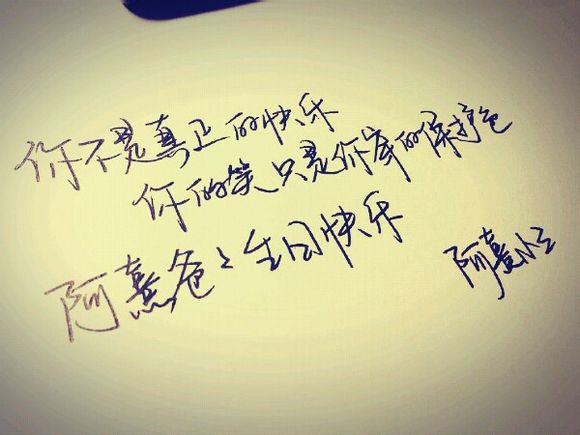 你不是真正的快乐
你的笑只是你穿的保护色
阿熹爸々生日快乐
阿熹